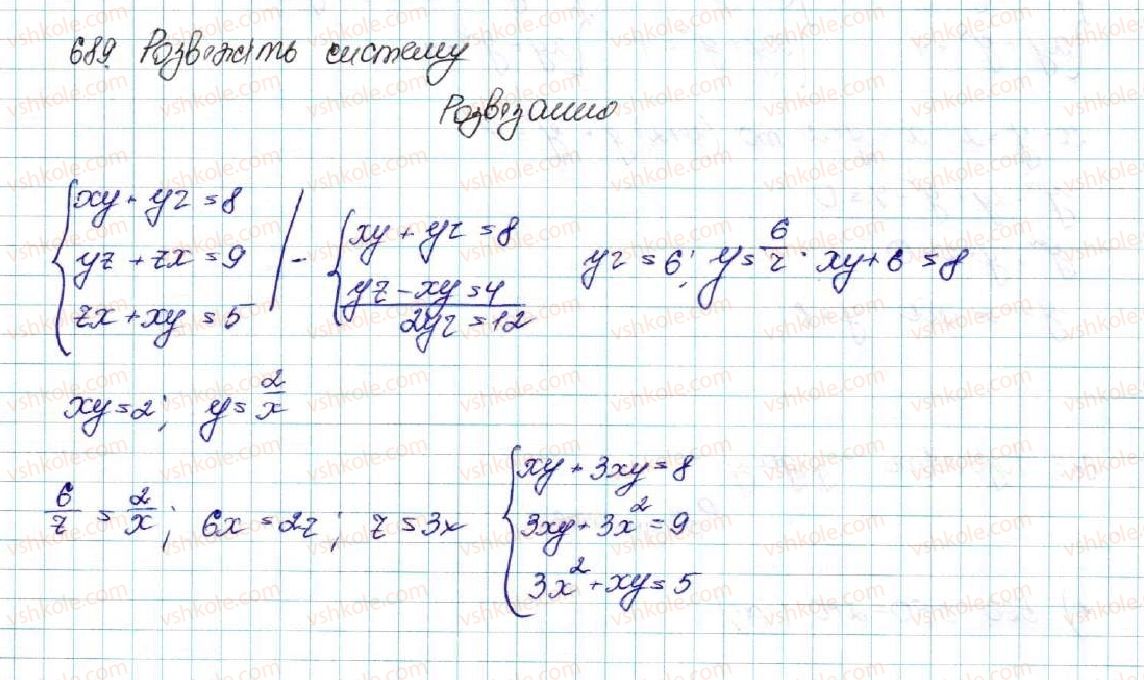 689. Розв'яжіть систему
Розв'язання
{xy + yz = 8
{yz + zx = 9
{zx + xy = 5 / -
{xy + yz = 8
{yz - xy = 4
2yz = 12
yz = 6; y = 6/z. xy + 6 = 8
xy = 2; y = 2/x
6/z = 2/x; 6x = 2z; z = 3x
{xy + 3xy = 8
{3xy + 3x² = 9
{3x² + xy = 5
vshkole.com